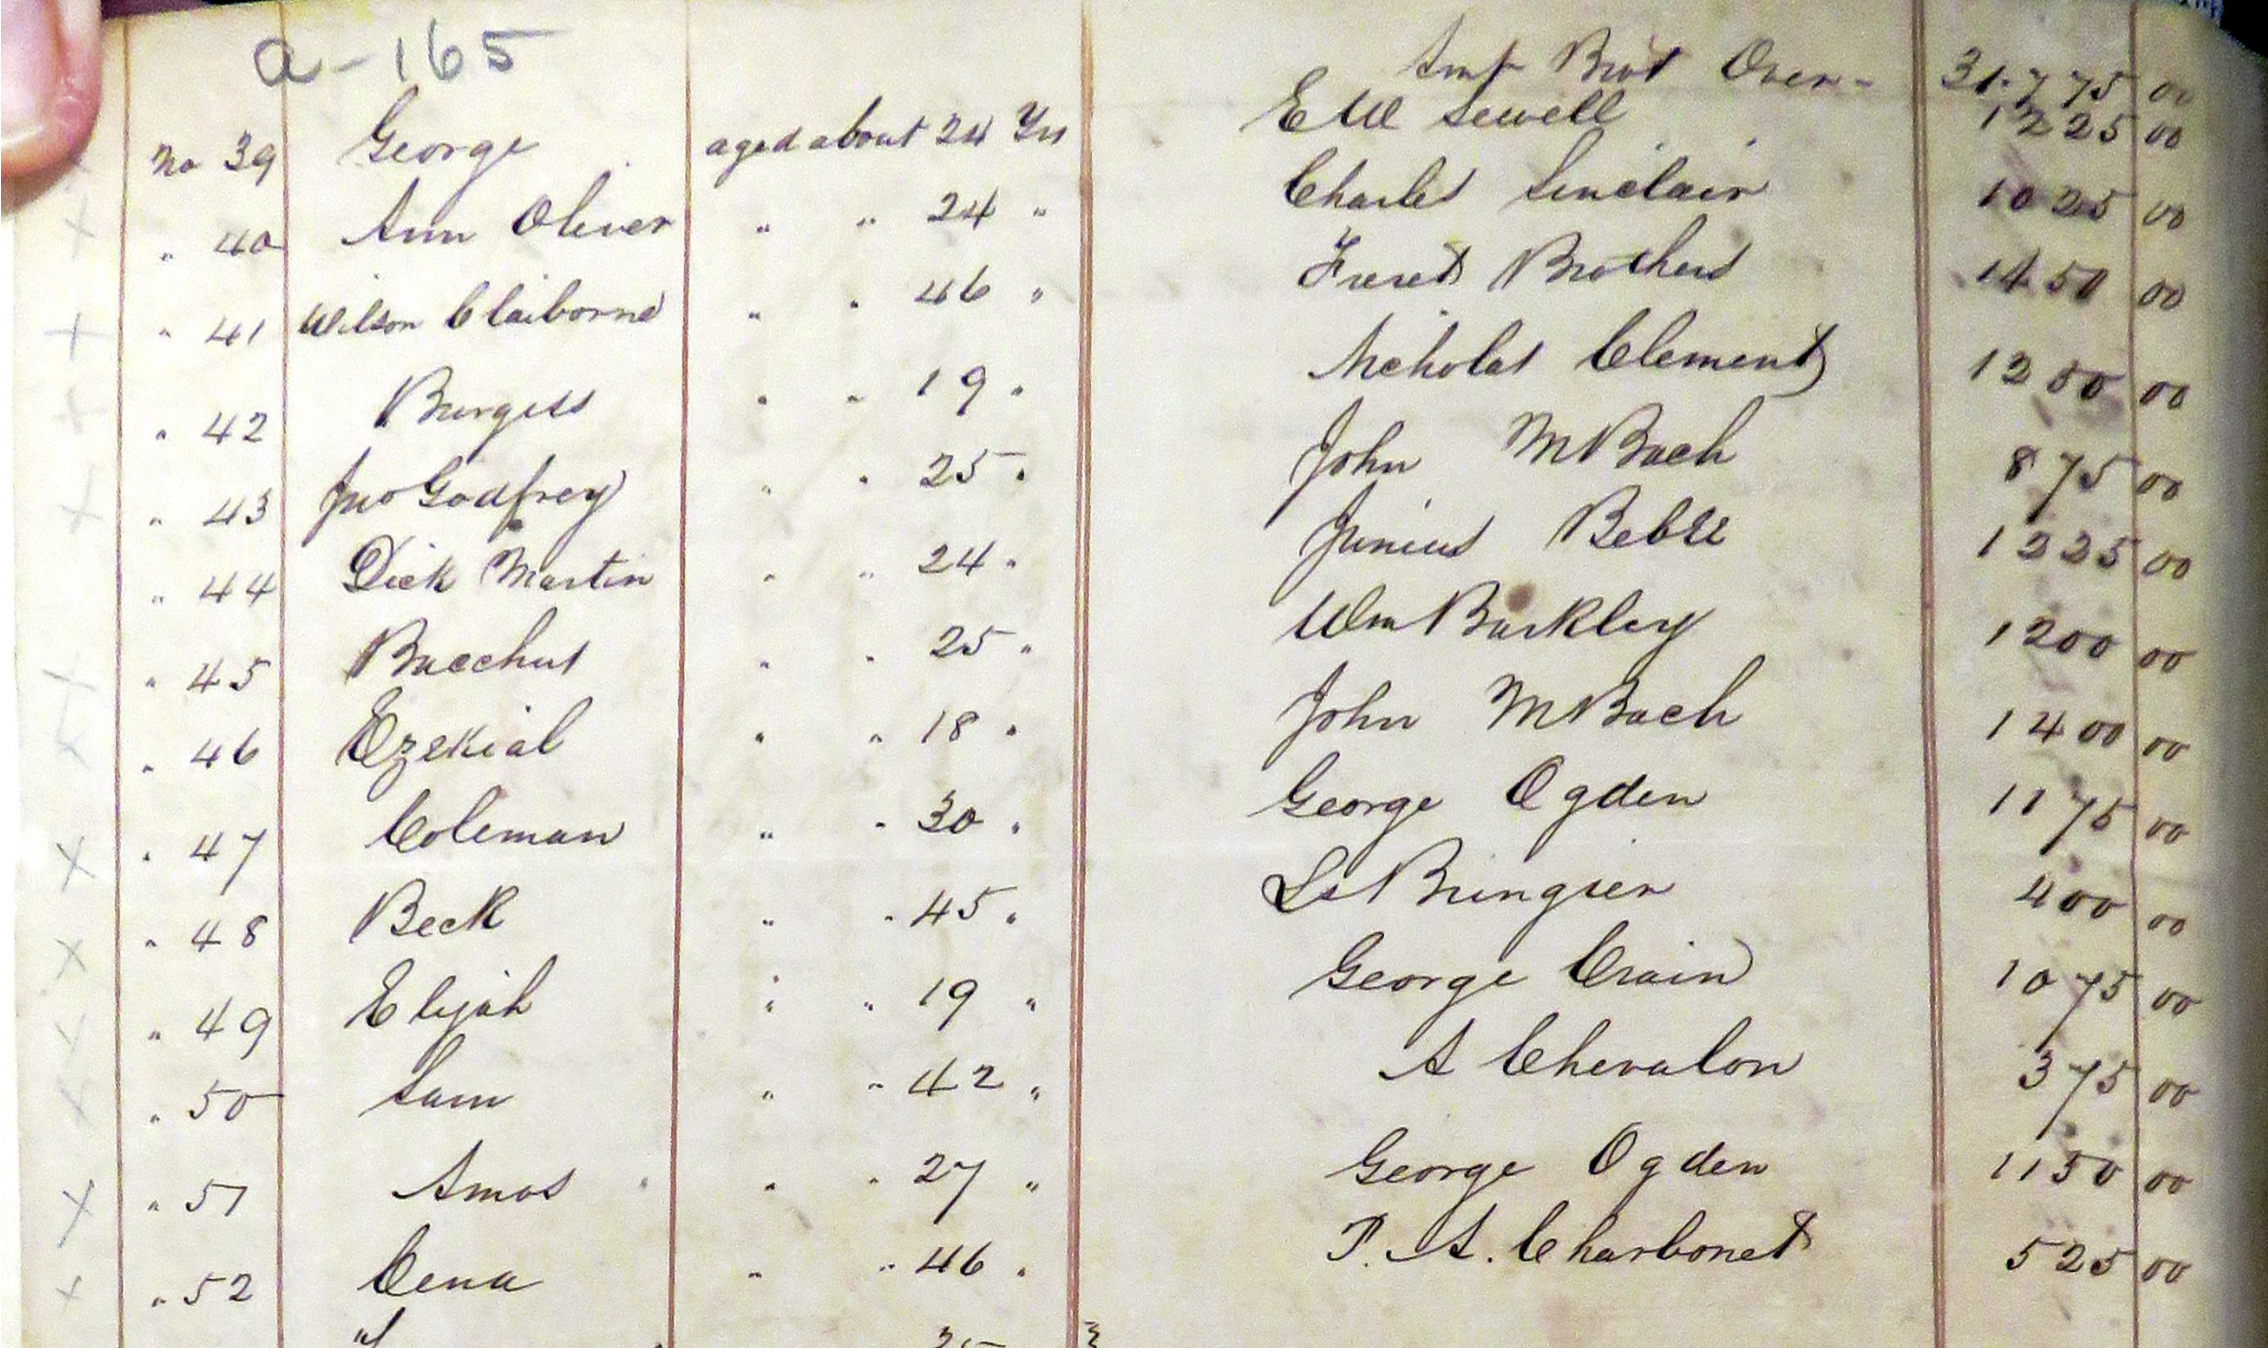 a-165
Amt Brot Over - 31.775 00
No 39 George aged about 24 Yrs E W Sewell 1225 00
" 40 Ann Oliver " " 24 " Charles Sinclair 1025 00
" 41 Wilson Claiborne " " 46 " Freret Brothers 1450 00
" 42 Burgess " " 19 " Nicholas Clement 1200 00
" 43 Jno Godfrey " " 25 " John M Bach 875 00
" 44 Dick Martin " " 24 " Junius Beble 1225 00
" 45 Bacchus " " 25 " Wm Barkley 1200 00
" 46 Ezekial " " 18 " John M Bach 1400 00
" 47 Coleman " " 30 " George Ogden 1175 00
" 48 Beck " " 45 " Ls Bringier 400 00
" 49 Elijah " " 19 " George Crain 1075 00
" 50 Sam " " 42 " A Chevalon 375 00
" 51 Amos " " 27 " George Ogden 1150 00
" 52 Cena " " 46 " P. A. Charbonet 525 00